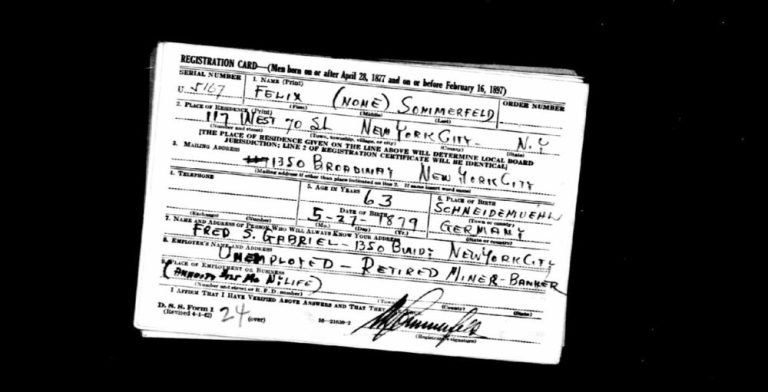 REGISTRATION CARD—(Men born on or after April 28, 1877 and on or before February 16, 1897)
SERIAL NUMBER 1. NAME (Print) ORDER NUMBER
U 5167 FELIX (NONE) SOMMERFELD
(First) (Middle) (Last)
2. PLACE OF RESIDENCE (Print)
117 WEST 70 St NEW YORK CITY- N.Y
(Number and street) (Town, township, village, or city) (County) (State)
[THE PLACE OF RESIDENCE GIVEN ON THE LINE ABOVE WILL DETERMINE LOCAL BOARD
JURISDICTION; LINE 2 OF REGISTRATION CERTIFICATE WILL BE IDENTICAL]
3. MAILING ADDRESS
1350 BROADWAY NEW YORK CITY
(Mailing address if other than place indicated on line 2. If same insert word same)
4. TELEPHONE 5. AGE IN YEARS 6. PLACE OF BIRTH
63 SCHNEIDEMUEHL
DATE OF BIRTH (Town or county)
5-27-1879 GERMANY
(Exchange) (Number) (Mo.) (Day) (Yr.) (State or country)
7. NAME AND ADDRESS OF PERSON WHO WILL ALWAYS KNOW YOUR ADDRESS
FRED S. GABRIEL-1350 NEW YORK CITY
8. EMPLOYER'S NAME AND ADDRESS
UNEMPLOYED - RETIRED MINER-BANKER
9. PLACE OF EMPLOYMENT OR BUSINESS
LIFE)
(Number and street or R. F. D. number) (Town) (County) (State)
I AFFIRM THAT I HAVE VERIFIED ABOVE ANSWERS AND THAT THEY
D. S. S. Form 1
(Revised 4-1-42) 24 (over) (Registrant's signature)